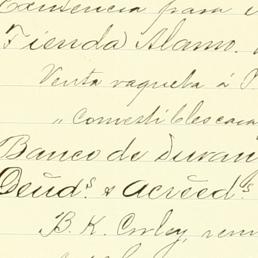 Existencia para
Tienda Alamo.
Venta vaqueta á
" comestibles
Banco de Duran
Deuds. & Acreeds.
B. K. Corley,